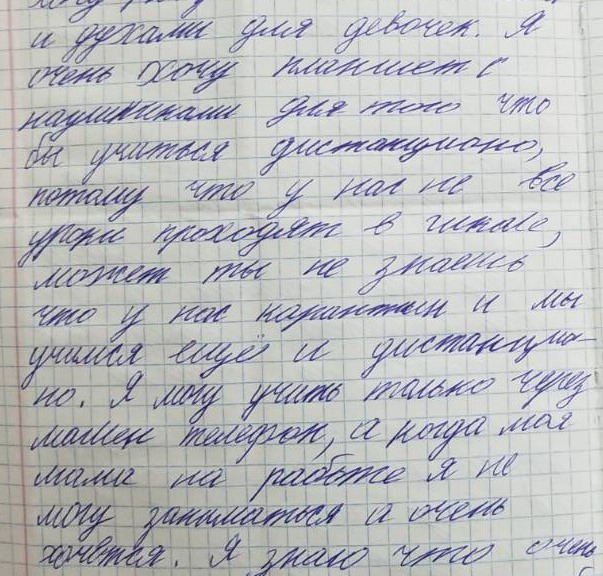 и духами для девочек. Я
очень хочу планшет с
наушниками для того что
бы учиться дистанционо,
потому что у нас не все
уроки проходят в школе,
может ты не знаешь
что у нас карантин и мы
учимся ещё и дистанцио-
но. Я могу учить только через
мамен телефон, а когда моя
мама на работе я не
могу заниматься а очень
хочется. Я знаю что очень